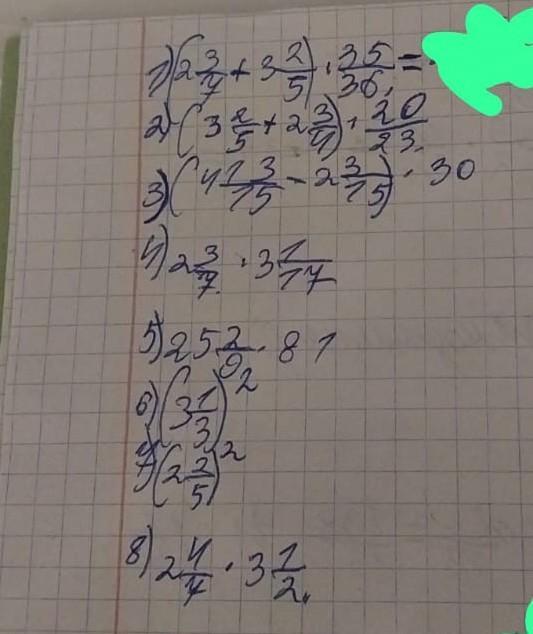 1) (2 3/7 + 3 2/5) · 35/36 =
2) (3 2/5 + 2 3/4) · 20/23.
3) (4 13/15 - 2 3/15) · 30
4) 2 3/7 · 3 1/17
5) 25 2/9 · 81
6) (3 1/3)²
7) (2 2/5)²
8) 2 4/7 · 3 1/2.